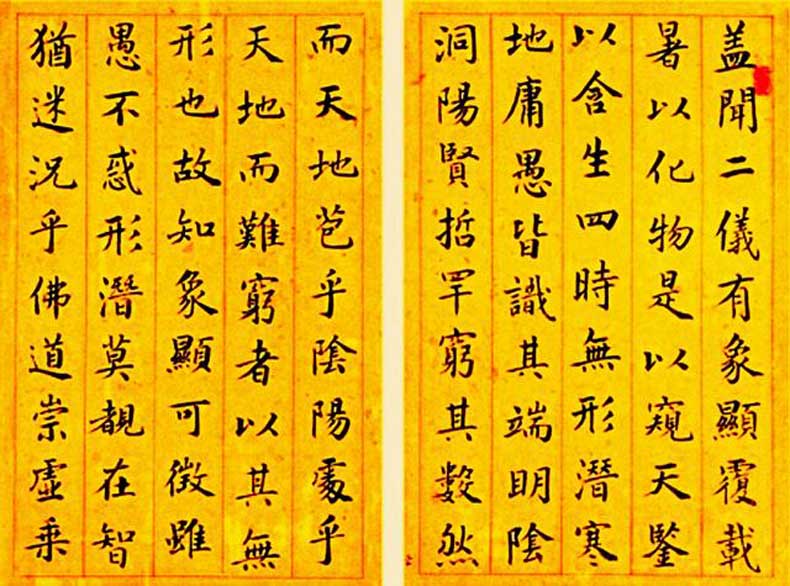 盖聞二儀有象顯覆載
暑以化物是以窺天鑒
以含生四時無形潛寒
地庸愚皆識其端明陰
洞陽賢哲罕窮其數然
而天地苞乎陰陽處乎
天地而難窮者以其無
形也故知象顯可徵雖
愚不惑形潛莫覩在智
猶迷況乎佛道崇虛乘